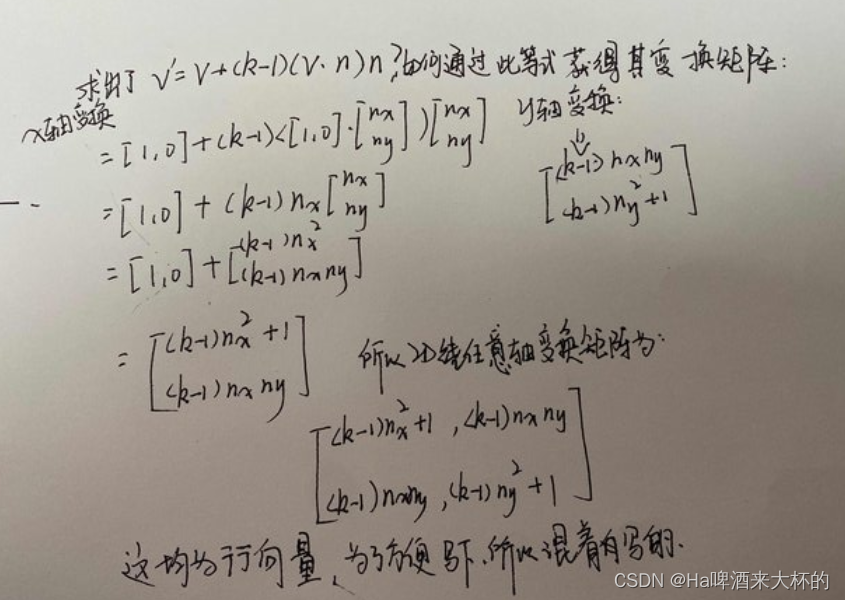 求出了 V'=V+(k-1)(V·n)n,如何通过此等式获得其变换矩阵:
x轴变换
=[1,0]+(k-1)([1,0]·[nx ny])[nx ny]
y轴变换:
=[1,0]+(k-1)nx[nx ny]
=[1,0]+[(k-1)nx² (k-1)nxny]
=[(k-1)nx²+1
(k-1)nxny]
[(k-1)nxny
(k-1)ny²+1]
所以2D绕任意轴变换矩阵为:
[(k-1)nx²+1,(k-1)nxny
(k-1)nxny,(k-1)ny²+1]
这均为行向量,为了方便写下,所以混着写的.
CSDN @Ha啤酒来大杯的